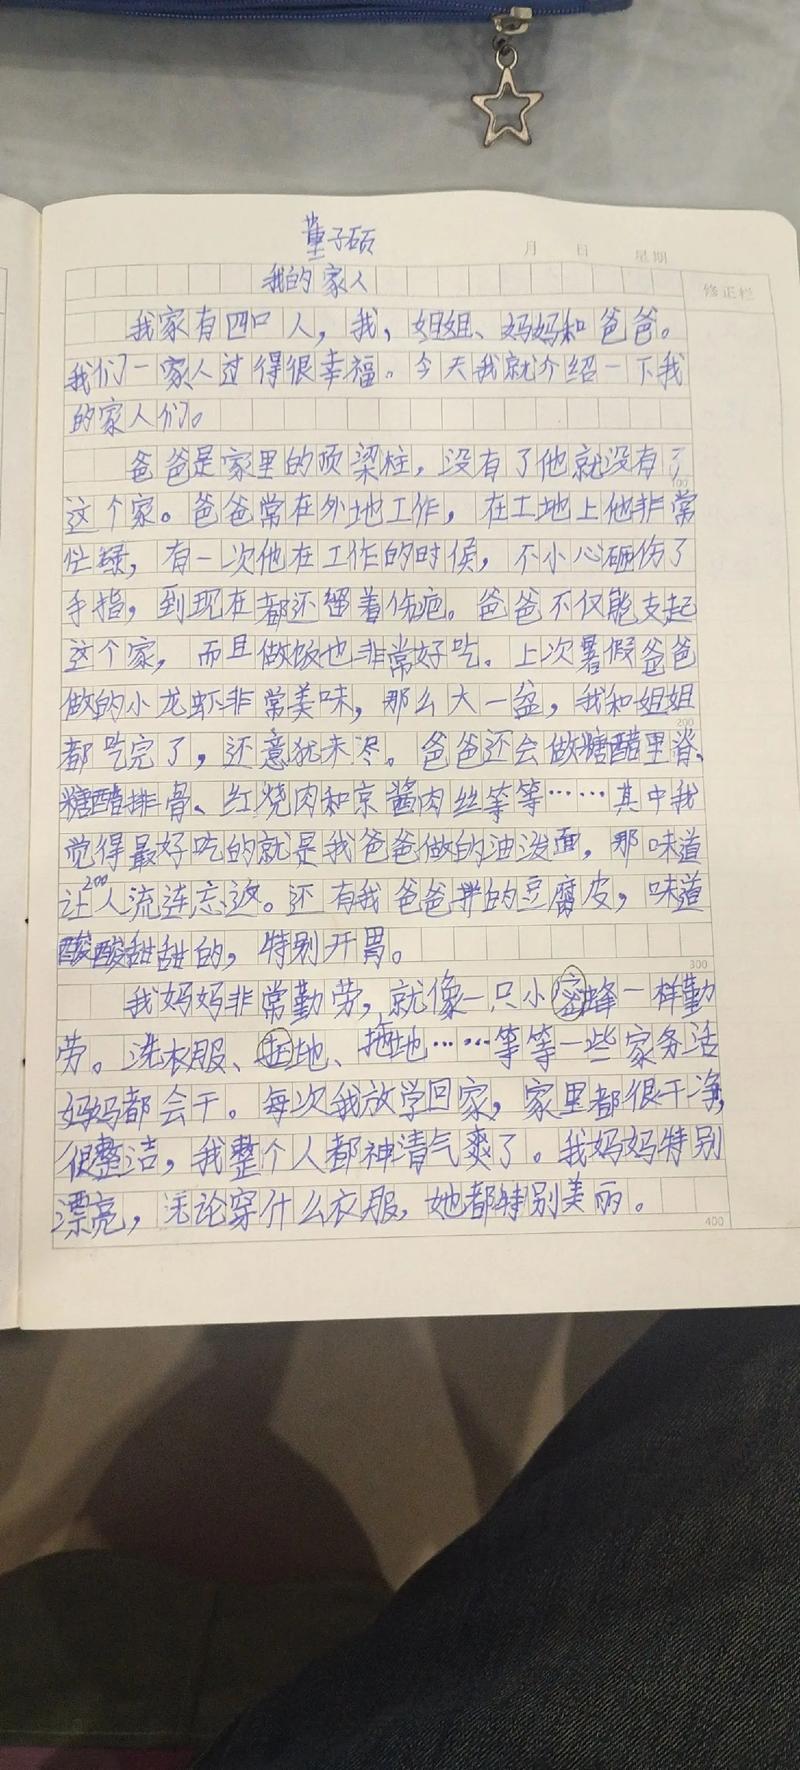 董子硕
月 日 星期
我的家人
修正栏
我家有四口人，我，姐姐、妈妈和爸爸。
我们一家人过得很幸福。今天我就介绍一下我
的家人们。
爸爸是家里的顶梁柱，没有了他就没有了
100
这个家。爸爸常在外地工作，在工地上他非常
忙碌，有一次他在工作的时候，不小心砸伤了
手指，到现在都还留着伤疤。爸爸不仅能支起
这个家，而且做饭也非常好吃。上次暑假爸爸
做的小龙虾非常美味，那么大一盆，我和姐姐
200
都吃完了，还意犹未尽。爸爸还会做糖醋里脊、
糖醋排骨、红烧肉和京酱肉丝等等……其中我
觉得最好吃的就是我爸爸做的油泼面，那味道
200
让人流连忘返。还有我爸爸拌的豆腐皮，味道
酸酸甜甜的，特别开胃。
300
我妈妈非常勤劳，就像一只小蜜蜂一样勤
劳。洗衣服、扫地、拖地……等等一些家务活
妈妈都会干。每次我放学回家，家里都很干净，
很整洁，我整个人都神清气爽了。我妈妈特别
漂亮，无论穿什么衣服，她都特别美丽。
400